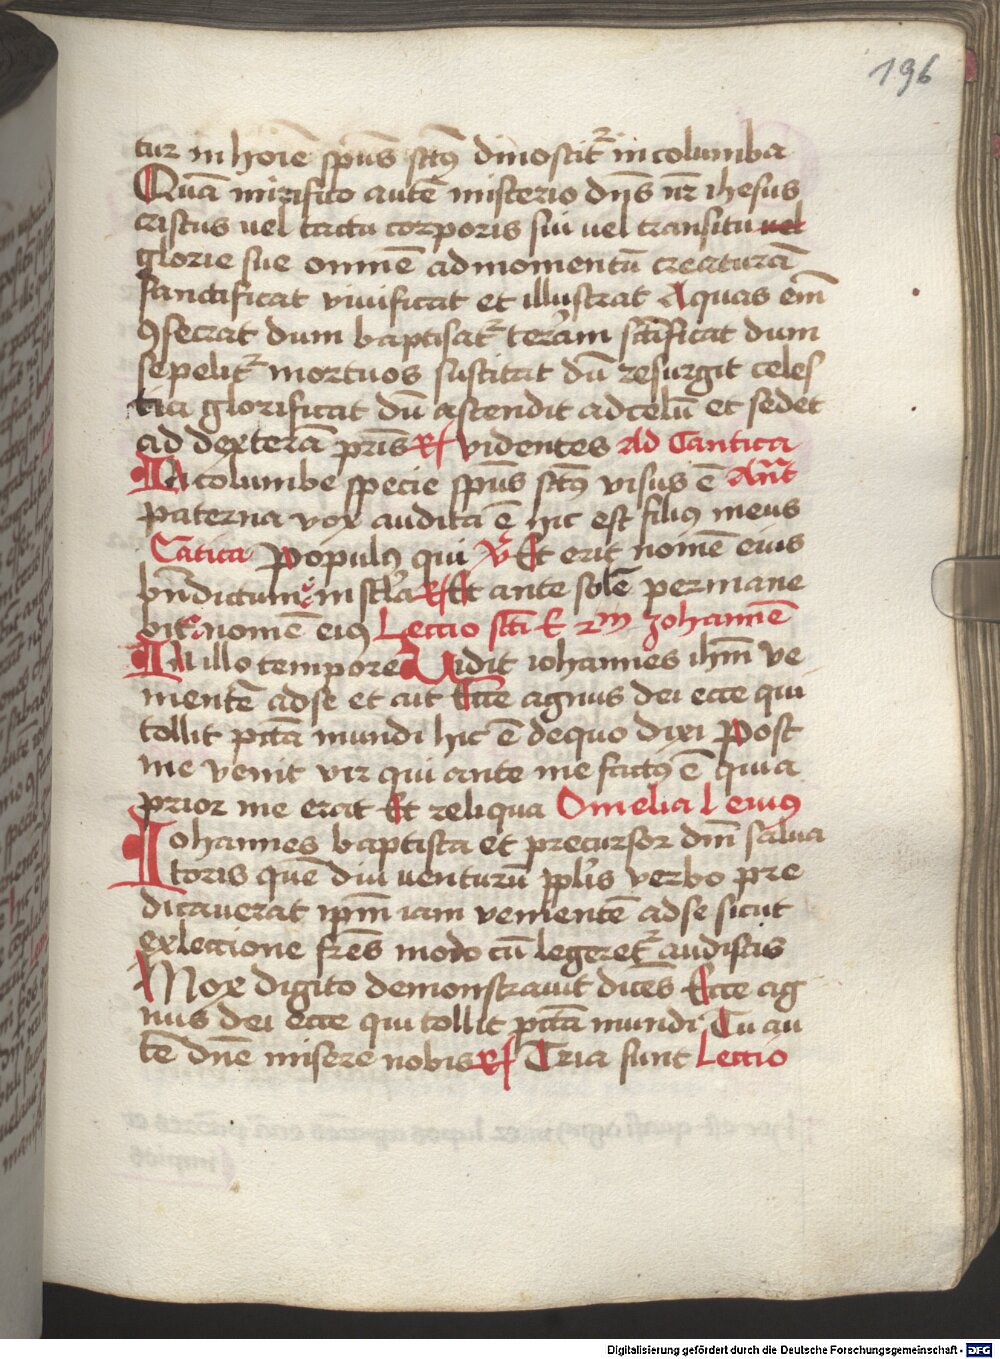 196
tur in hoīe spūs sctūs dinoscit᷑ in columba
Quā mirifico autē misterio dn̄s nr̄ ihesus
cristus vel tactu corporis sui vel transitu vel
glorie sue omnē ad momentū creaturā
sanctificat viuificat et illustrat Aquas em̄
ꝯsecrat dum baptisat᷑ terram sc̄ificat dum
sepelit᷑ mortuos suscitat dū resurgit celes
tia glorificat dū ascendit ad celū et sedet
ad dexterā pr̄is R videntes Ad Cantica
In columbe specie spūs sctūs visus ē An̄t
paterna vox audita ē hic est filiꝰ meus
Cātica Populꝰ qui V Et erit nomē eius
bn̄dictum in sc̄la R Et ante solē permane
bit nomē eiꝰ Leccio sc̄ti E zm Johannē
In illo tempore Uidit iohannes ihm̄ ve
nientē ad se et ait Ecce agnus dei ecce qui
tollit pctā mundi hic ē de quo dixi Post
me venit vir qui ante me factꝰ ē quia
prior me erat Et reliqua Omelia l eiuꝰ
Iohannes baptista et precursor dn̄i salua
toris quē diu venturū ppl̄is verbo pre
dicauerat ipm̄ iam venientē ad se sicut
ex leccione fr̄es modo cū legeret᷑ audistis
Mox digito demonstrauit dicēs Ecce ag
nus dei ecce qui tollit pctā mundi Tu au
tē dn̄e misere nobis R Tria sunt Leccio
Digitalisierung gefördert durch die Deutsche Forschungsgemeinschaft - DFG